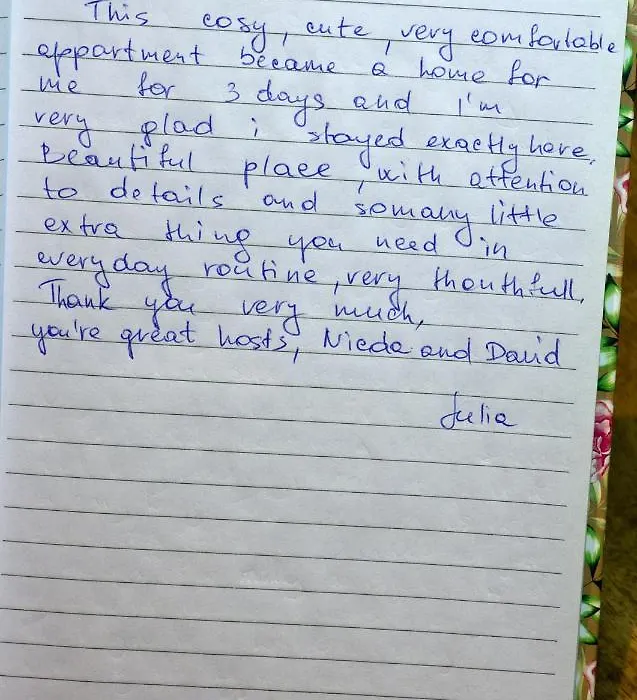 This cosy, cute, very comfortable
appartment became a home for
me for 3 days and I'm
very glad i stayed exactly here.
Beautiful place, with attention
to details and somany little
extra thing you need in
everyday routine, very thouthfull.
Thank you very much,
you're great hosts, Nieda and David
Julia